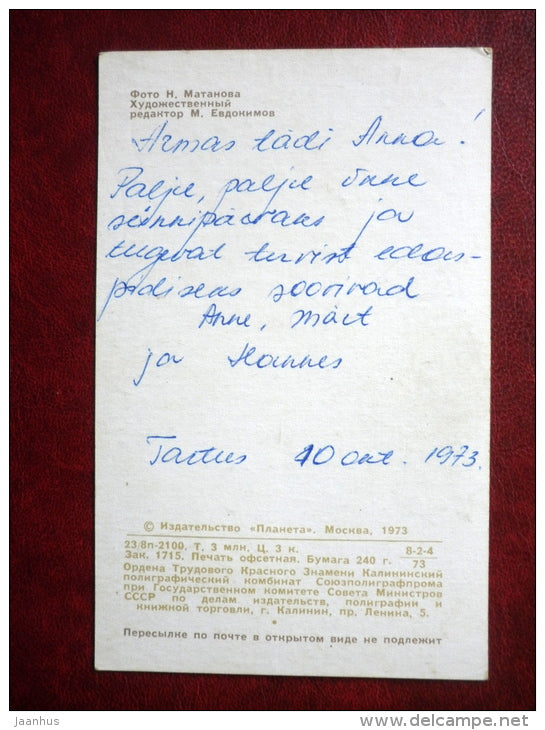 Фото Н. Матанова
Художественный
редактор М. Евдокимов
Armas tädi Anna!
Palju, palju õnne
sünnipäevaks ja
tugevat tervist edas-
pidiseks soovivad
Anne, Märt
ja Hannes
Tartus 10 okt. 1973.
© Издательство «Планета». Москва, 1973
23/8п-2100. Т. 3 млн. Ц. 3 к. 8-2-4
Зак. 1715. Печать офсетная. Бумага 240 г. 73
Ордена Трудового Красного Знамени Калининский
полиграфический комбинат Союзполиграфпрома
при Государственном комитете Совета Министров
СССР по делам издательств, полиграфии и
книжной торговли, г. Калинин, пр. Ленина, 5.
Пересылке по почте в открытом виде не подлежит
jaanhus www.delcampe.net